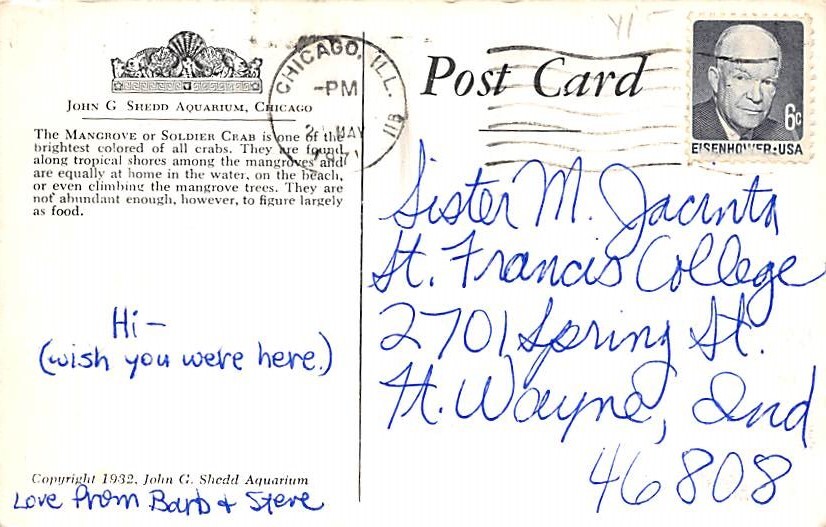 JOHN G SHEDD AQUARIUM, CHICAGO
The MANGROVE or SOLDIER CRAB is one of the
brightest colored of all crabs. They are found
along tropical shores among the mangroves and
are equally at home in the water, on the beach,
or even climbing the mangrove trees. They are
not abundant enough, however, to figure largely
as food.
Hi -
(wish you were here.)
Copyright 1932, John G. Shedd Aquarium
Love from Barb + Steve
CHICAGO, ILL.
-PM
MAY
Post Card
6c
EISENHOWER·USA
Sister M. Jacinta
St. Francis College
2701 Spring St.
Ft. Wayne, Ind
46808